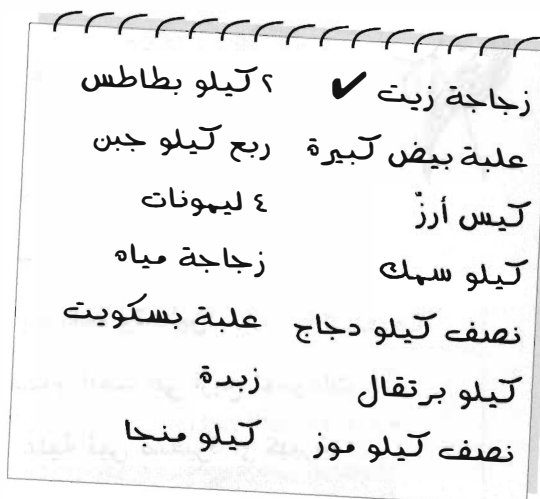 زجاجة زيت ✔
علبة بيض كبيرة
كيس أرزّ
كيلو سمك
نصف كيلو دجاج
كيلو برتقال
نصف كيلو موز
٢ كيلو بطاطس
ربع كيلو جبن
٤ ليمونات
زجاجة مياه
علبة بسكويت
زبدة
كيلو منجا